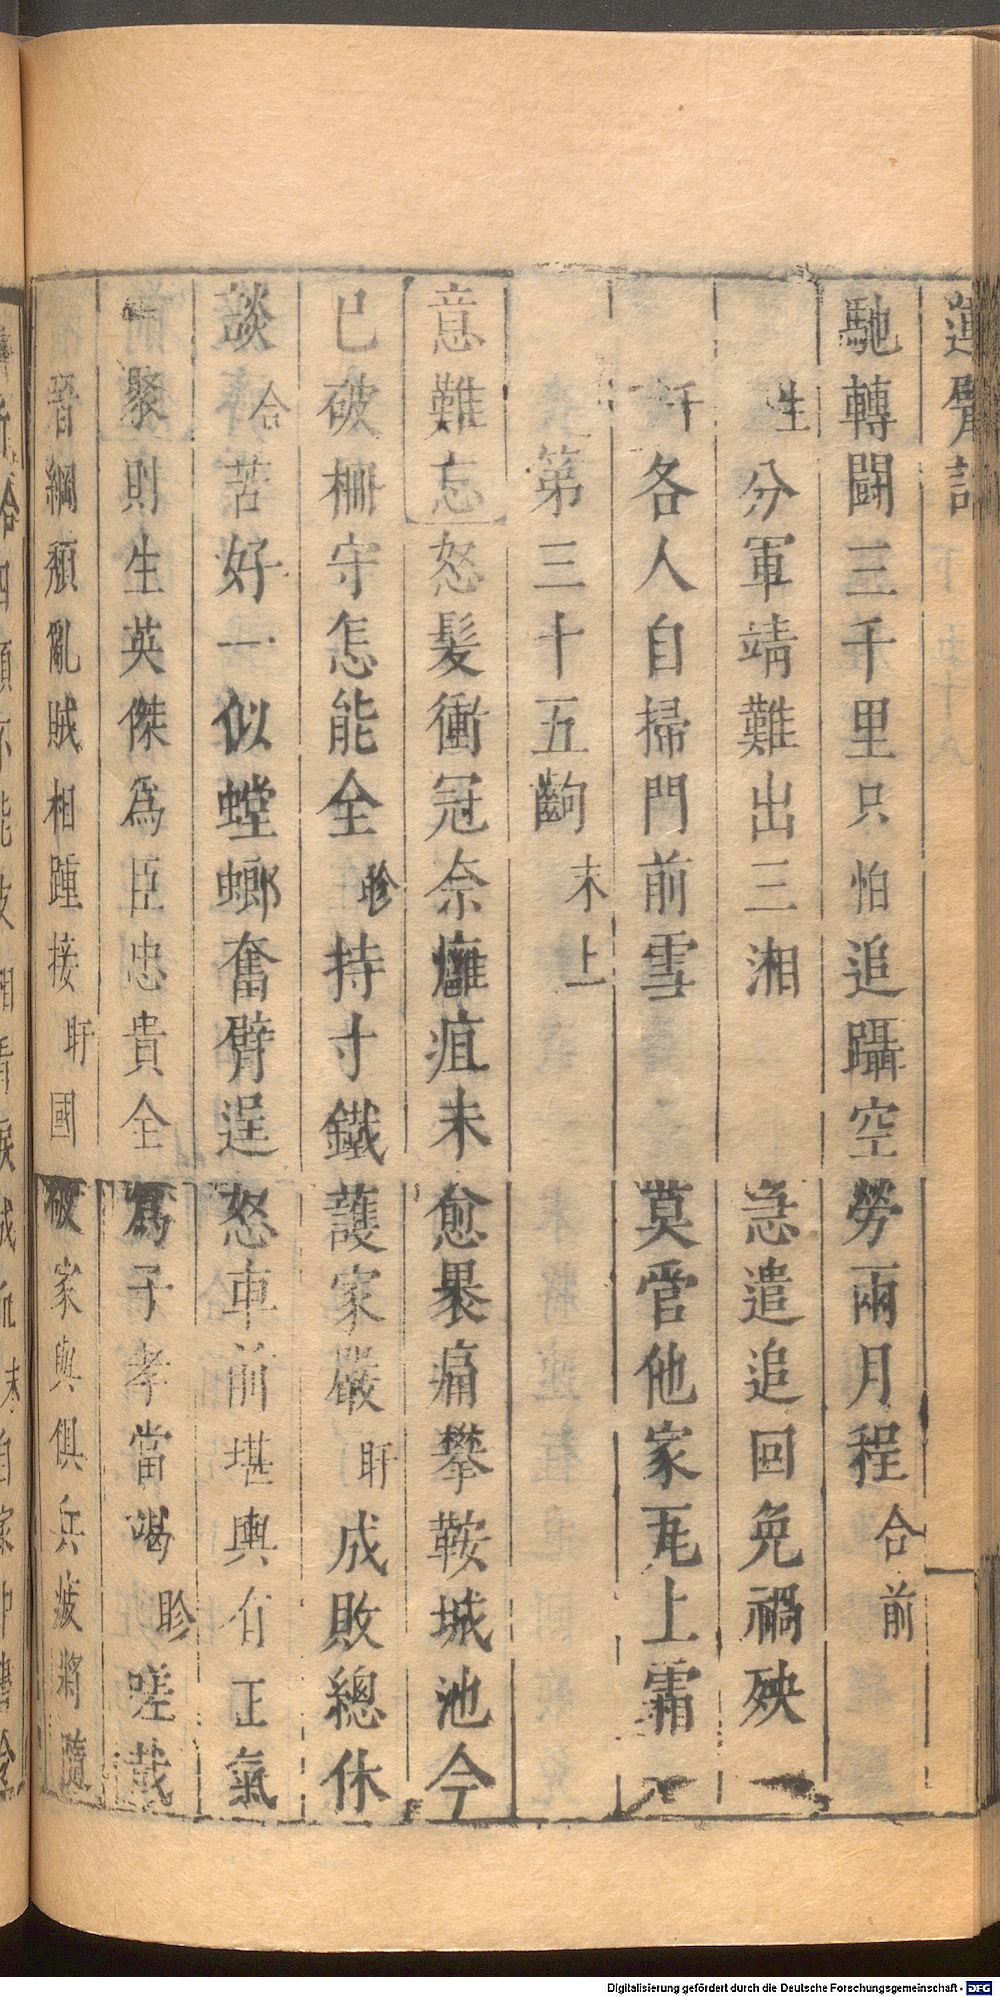 運臂記
馳轉鬪三千里只怕追躡空勞兩月程合前
生分軍靖難出三湘 急遣追回免禍殃
各人自掃門前雪 莫管他家瓦上霜
第三十五齣 末上
意難忘怒髮衝冠奈癰疽未愈暴痛攀鞍城池今
已破柵守怎能全聄持寸鐵護家嚴盱成敗總休
談合苦好一似螳螂奮臂逞怒車前堪輿有正氣
一聚則生英傑為臣忠貴全為子孝當竭聄嗟哉
晉綱頽亂賊相踵接盱國破家與俱兵疲將隨
Digitalisierung gefördert durch die Deutsche Forschungsgemeinschaft - DFG